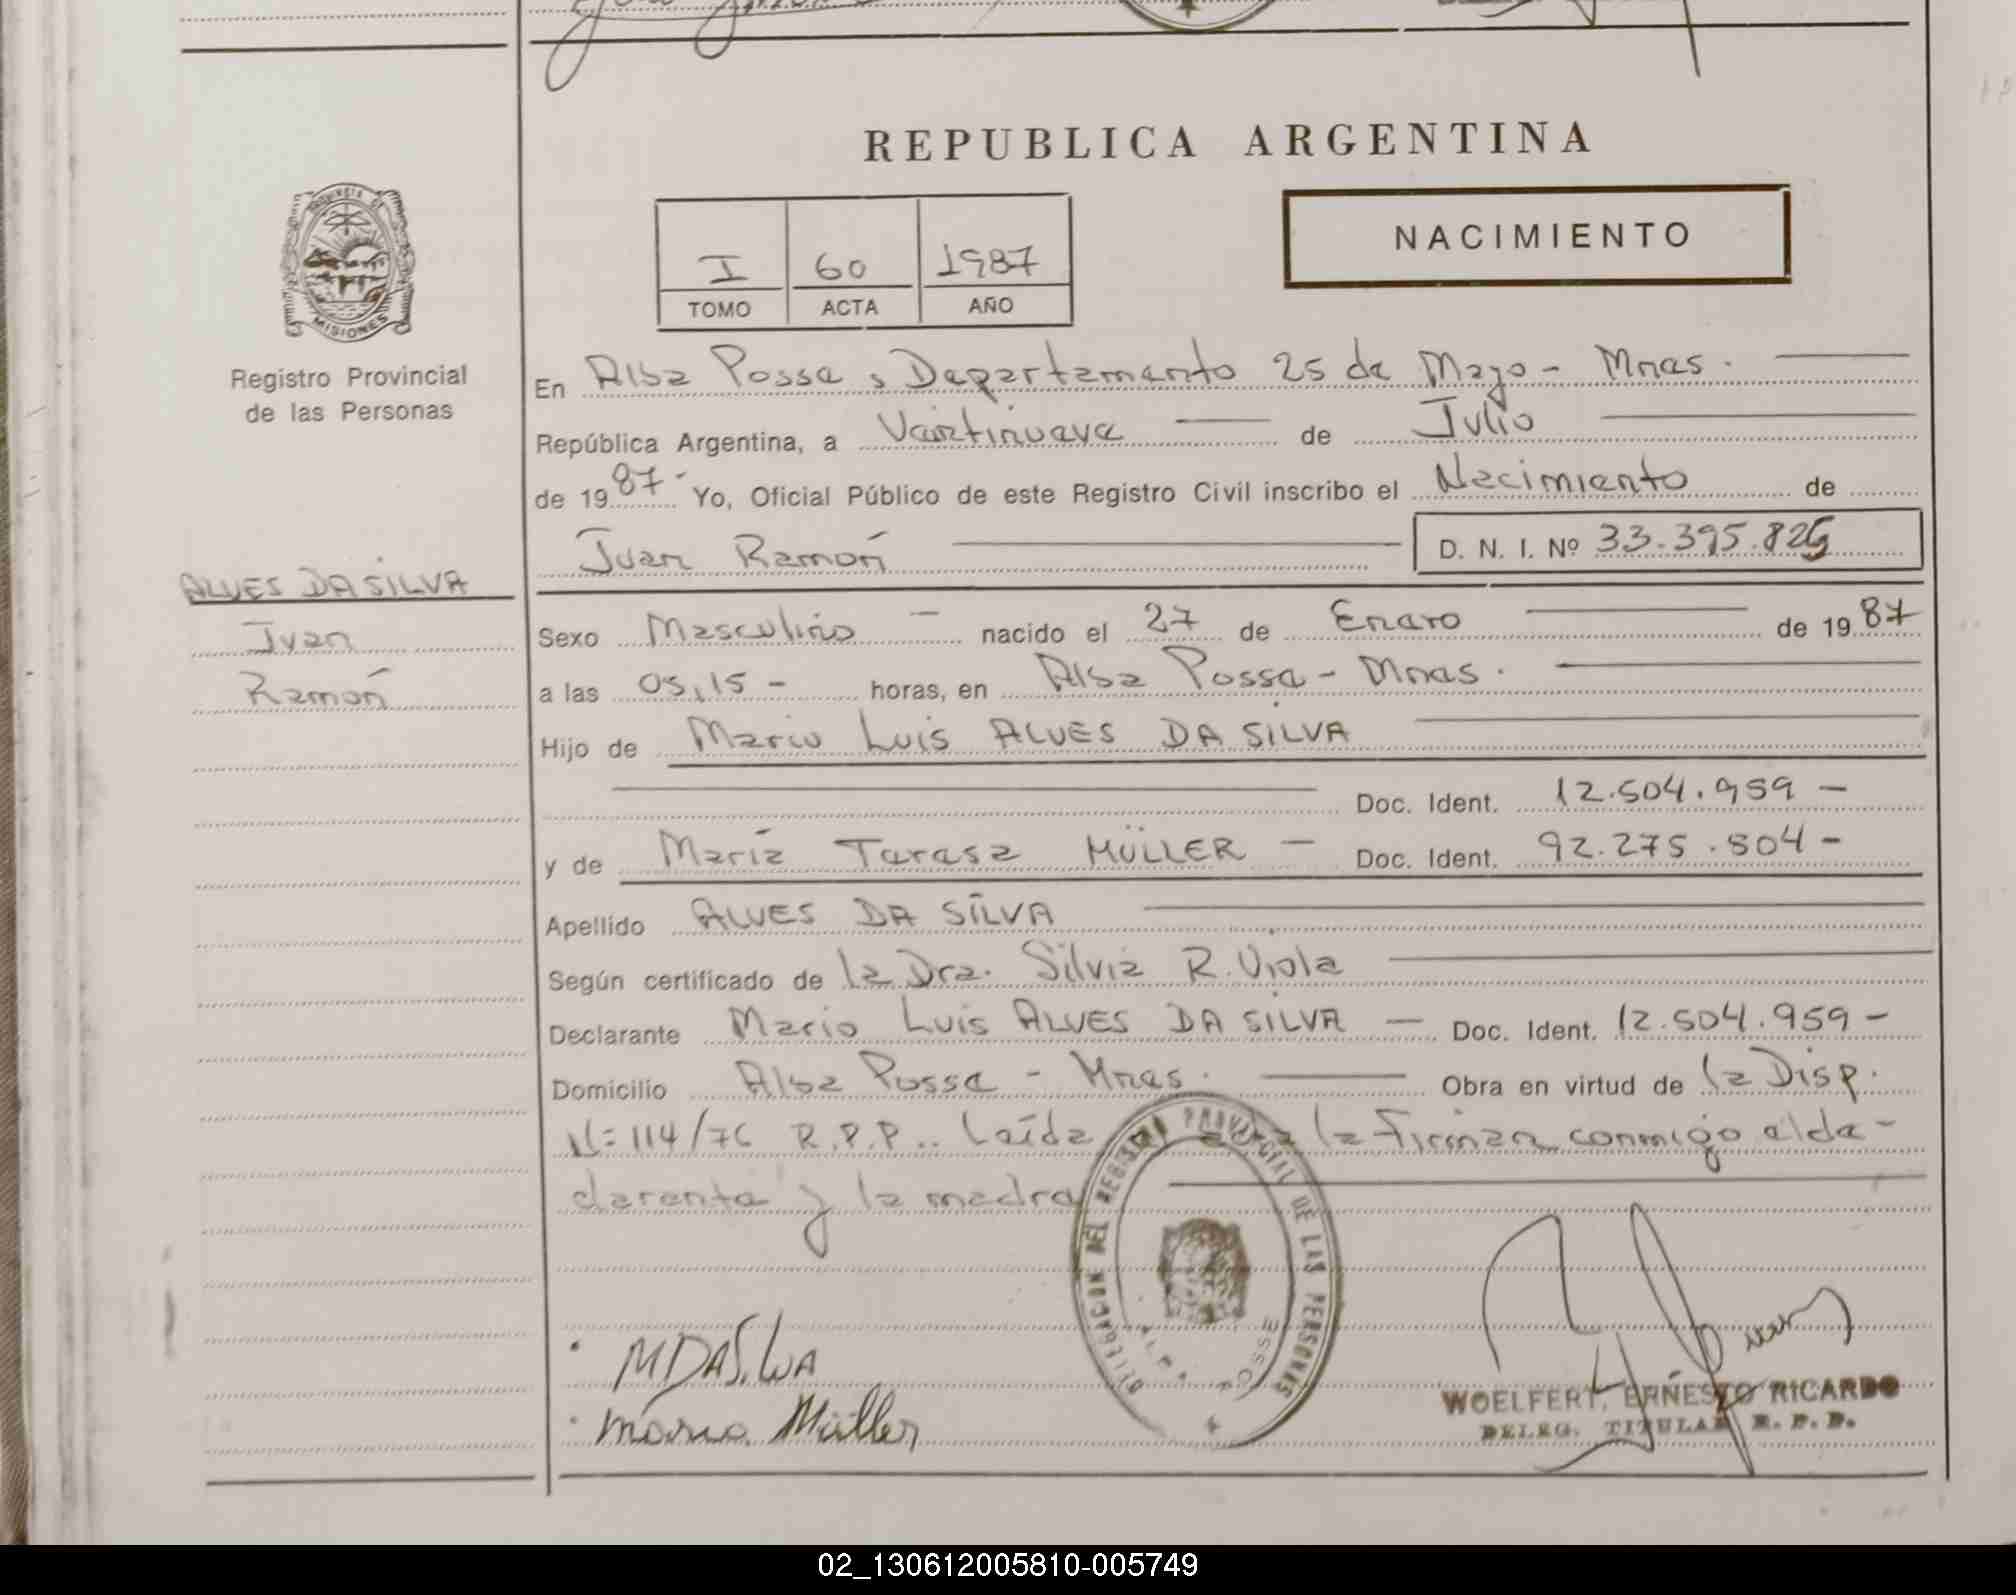 REPUBLICA ARGENTINA
PROVINCIA DE
MISIONES
Registro Provincial
de las Personas
I 60 1987
TOMO ACTA AÑO
NACIMIENTO
En Alba Posse, Departamento 25 de Mayo - Mnes.
República Argentina, a Veintinueve de Julio
de 1987 Yo, Oficial Público de este Registro Civil inscribo el Nacimiento de
Juan Ramón D. N. I. Nº 33.395.825
ALVES DA SILVA
Juan
Ramón
Sexo Masculino nacido el 27 de Enero de 1987
a las 05,15 - horas, en Alba Posse - Mnes.
Hijo de Mario Luis ALVES DA SILVA
Doc. Ident. 12.504.959 -
y de María Teresa MÜLLER - Doc. Ident. 92.275.504 -
Apellido ALVES DA SILVA
Según certificado de la Dra. Silvia R. Viola
Declarante Mario Luis ALVES DA SILVA - Doc. Ident. 12.504.959 -
Domicilio Alba Posse - Mnes. Obra en virtud de la Disp.
Nº 114/76 R.P.P.. Leída el acta la firman conmigo el de-
clarente y la madre
DELEGACION DEL REGISTRO PROVINCIAL DE LAS PERSONAS
ALBA POSSE
MDASilva
Maria Müller
WOELFERT, ERNESTO RICARDO
DELEG. TITULAR R. P. P.
02_130612005810-005749